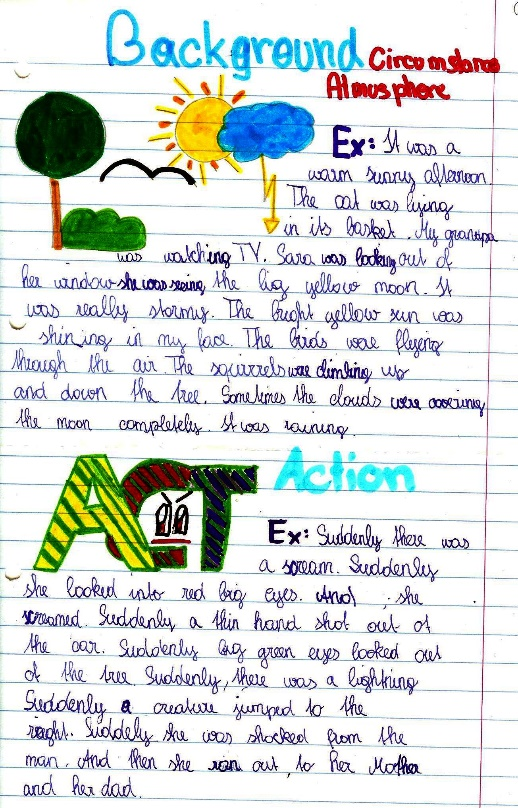 Background Circumstance
Atmosphere
Ex: It was a
warm sunny afternoon.
The cat was lying
in its basket. My grandpa
was watching TV. Sara was looking out of
her window she was seeing the big yellow moon. It
was really stormy. The bright yellow sun was
shining in my face. The birds were flying
through the air. The squirrels were climbing up
and down the tree. Sometimes the clouds were covering
the moon completely. It was raining.
ACT Action
Ex: Suddenly there was
a scream. Suddenly
she looked into red big eyes. And she
screamed. Suddenly a thin hand shot out of
the car. Suddenly big green eyes looked out
of the tree. Suddenly, there was a lightning
Suddenly a creature jumped to the
right. Suddely she was shocked from the
man. And then she ran out, to her Mother
and her dad.